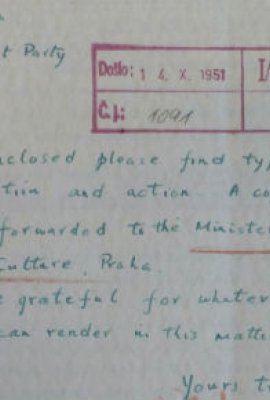 t Party
Došlo: 1 4. X. 1951
Č.j.: 1091
nclosed please find typ
tion and action. A co
forwarded to the Ministe
Culture, Praha.
e grateful for whatever
can render in this matt
Yours t